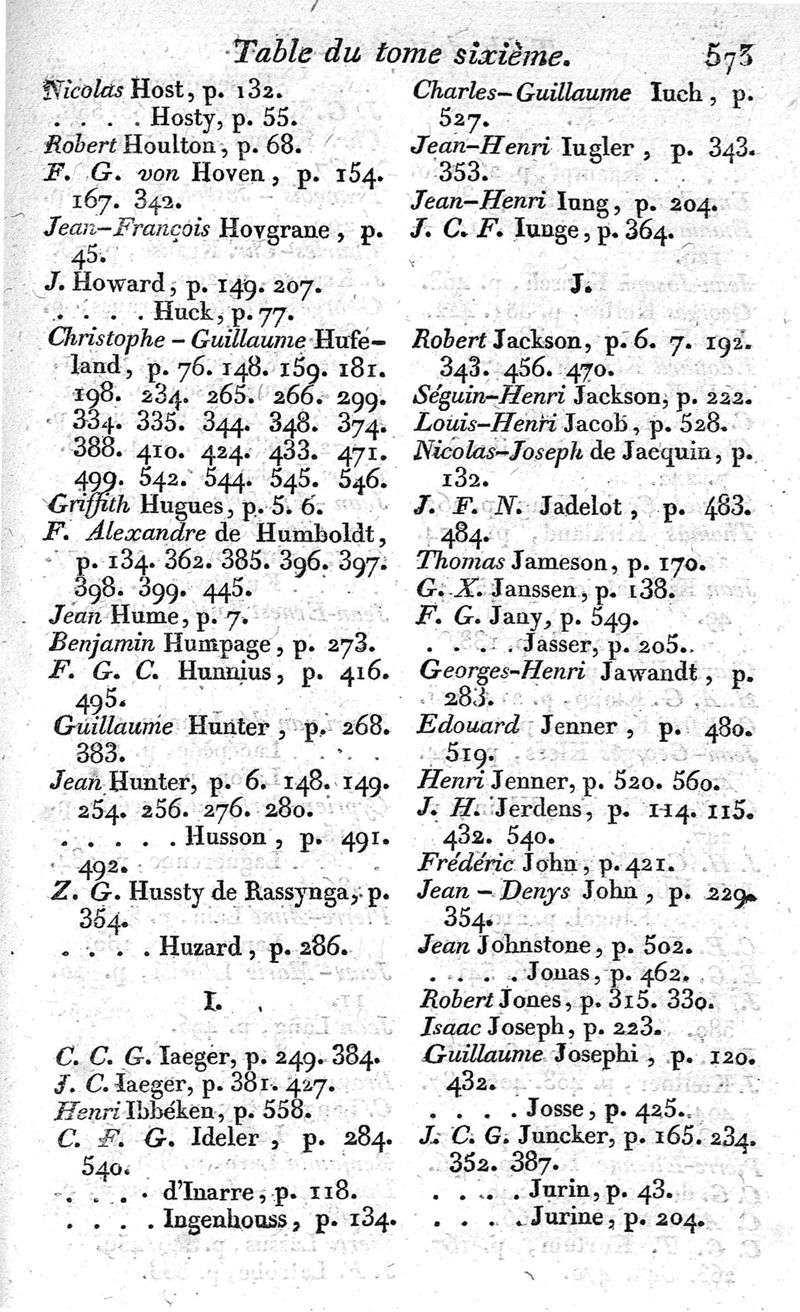 Table du tome sixième. 573
Nicolas Host, p. 132.
. . . . Hosty, p. 55.
Robert Houlton, p. 68.
F. G. von Hoven, p. 154.
167. 342.
Jean-François Hovgrane, p.
45.
J. Howard, p. 149. 207.
. . . . Huck, p. 77.
Christophe-Guillaume Hufe-
land, p. 76. 148. 159. 181.
198. 234. 265. 266. 299.
334. 335. 344. 348. 374.
388. 410. 424. 433. 471.
499. 542. 544. 545. 546.
Griffith Hugues, p. 5. 6.
F. Alexandre de Humboldt,
p. 134. 362. 385. 396. 397.
398. 399. 445.
Jean Hume, p. 7.
Benjamin Humpage, p. 273.
F. G. C. Hunnius, p. 416.
495.
Guillaume Hunter, p. 268.
383.
Jean Hunter, p. 6. 148. 149.
254. 256. 276. 280.
. . . . . Husson, p. 491.
492.
Z. G. Hussty de Rassynga, p.
354.
. . . . Huzard, p. 286.
I.
C. C. G. Iaeger, p. 249. 384.
J. C. Iaeger, p. 381. 427.
Henri Ibbéken, p. 558.
C. F. G. Ideler, p. 284.
540.
. . . . d'Inarre, p. 118.
. . . . Ingenhouss, p. 134.
Charles-Guillaume Iuch, p.
527.
Jean-Henri Iugler, p. 343.
353.
Jean-Henri Iung, p. 204.
J. C. F. Iunge, p. 364.
J.
Robert Jackson, p. 6. 7. 192.
343. 456. 470.
Séguin-Henri Jackson, p. 222.
Louis-Henri Jacob, p. 528.
Nicolas-Joseph de Jacquin, p.
132.
J. F. N. Jadelot, p. 483.
484.
Thomas Jameson, p. 170.
G. X. Janssen, p. 138.
F. G. Jany, p. 549.
. . . . Jasser, p. 205.
Georges-Henri Jawandt, p.
283.
Edouard Jenner, p. 480.
519.
Henri Jenner, p. 520. 560.
J. H. Jerdens, p. 114. 115.
432. 540.
Frédéric John, p. 421.
Jean-Denys John, p. 229.
354.
Jean Johnstone, p. 502.
. . . . Jonas, p. 462.
Robert Jones, p. 315. 330.
Isaac Joseph, p. 223.
Guillaume Josephi, p. 120.
432.
. . . . Josse, p. 425.
J. C. G. Juncker, p. 165. 234.
352. 387.
. . . . Jurin, p. 43.
. . . . Jurine, p. 204.